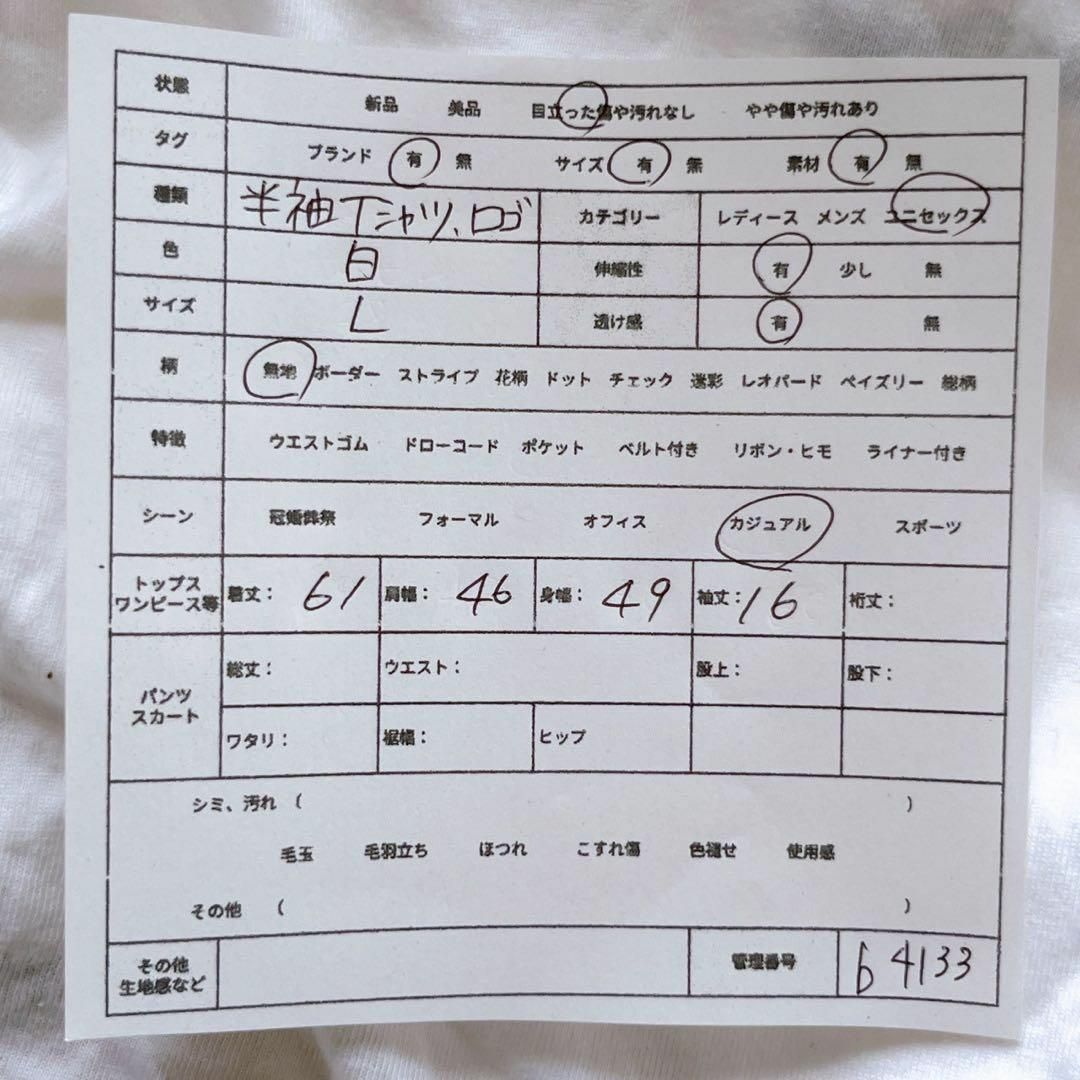 状態 新品 美品 目立った傷や汚れなし やや傷や汚れあり
タグ ブランド 有 無 サイズ 有 無 素材 有 無
種類 半袖Tシャツ、ロゴ カテゴリー レディース メンズ ユニセックス
色 白 伸縮性 有 少し 無
サイズ L 透け感 有 無
柄 無地 ボーダー ストライプ 花柄 ドット チェック 迷彩 レオパード ペイズリー 総柄
特徴 ウエストゴム ドローコード ポケット ベルト付き リボン・ヒモ ライナー付き
シーン 冠婚葬祭 フォーマル オフィス カジュアル スポーツ
トップス
ワンピース等 着丈: 61 肩幅: 46 身幅: 49 袖丈: 16 裄丈:
パンツ
スカート
総丈: ウエスト: 股上: 股下:
ワタリ: 裾幅: ヒップ
シミ、汚れ ( )
毛玉 毛羽立ち ほつれ こすれ傷 色褪せ 使用感
その他 ( )
その他
生地感など
管理番号 b4133